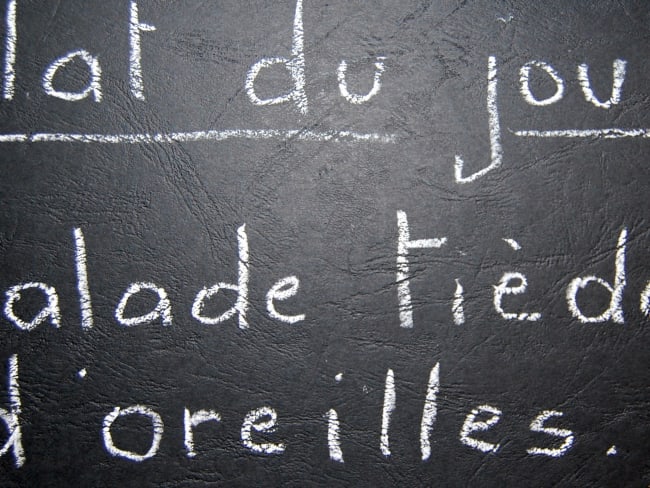 lat du jou
alade tiède
d'oreilles.